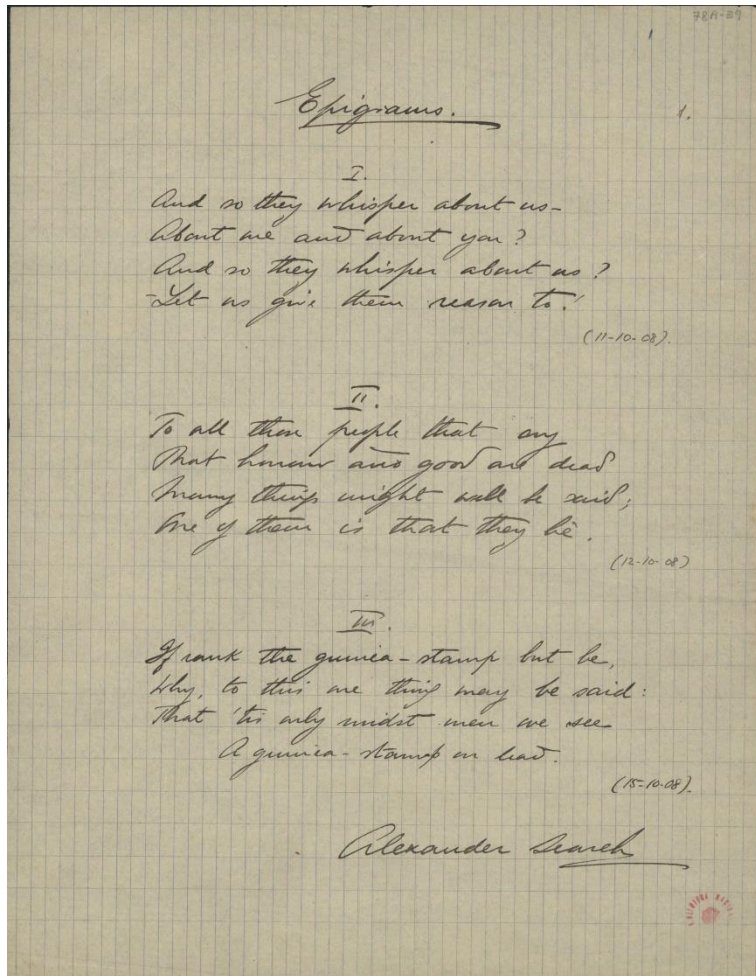 78A-87
1
Epigrams.
1.
I.
And so they whisper about us -
About me and about you?
And so they whisper about us?
- Let us give them reason to!
(11-10-08).
II.
To all those people that cry
That honour and good are dead
Many things might well be said;
One of them is that they lie.
(12-10-08)
III.
If rank the guinea-stamp but be,
Why, to this one thing may be said:
That 'tis only midst men we see
A guinea-stamp on lead.
(15-10-08).
Alexander Search